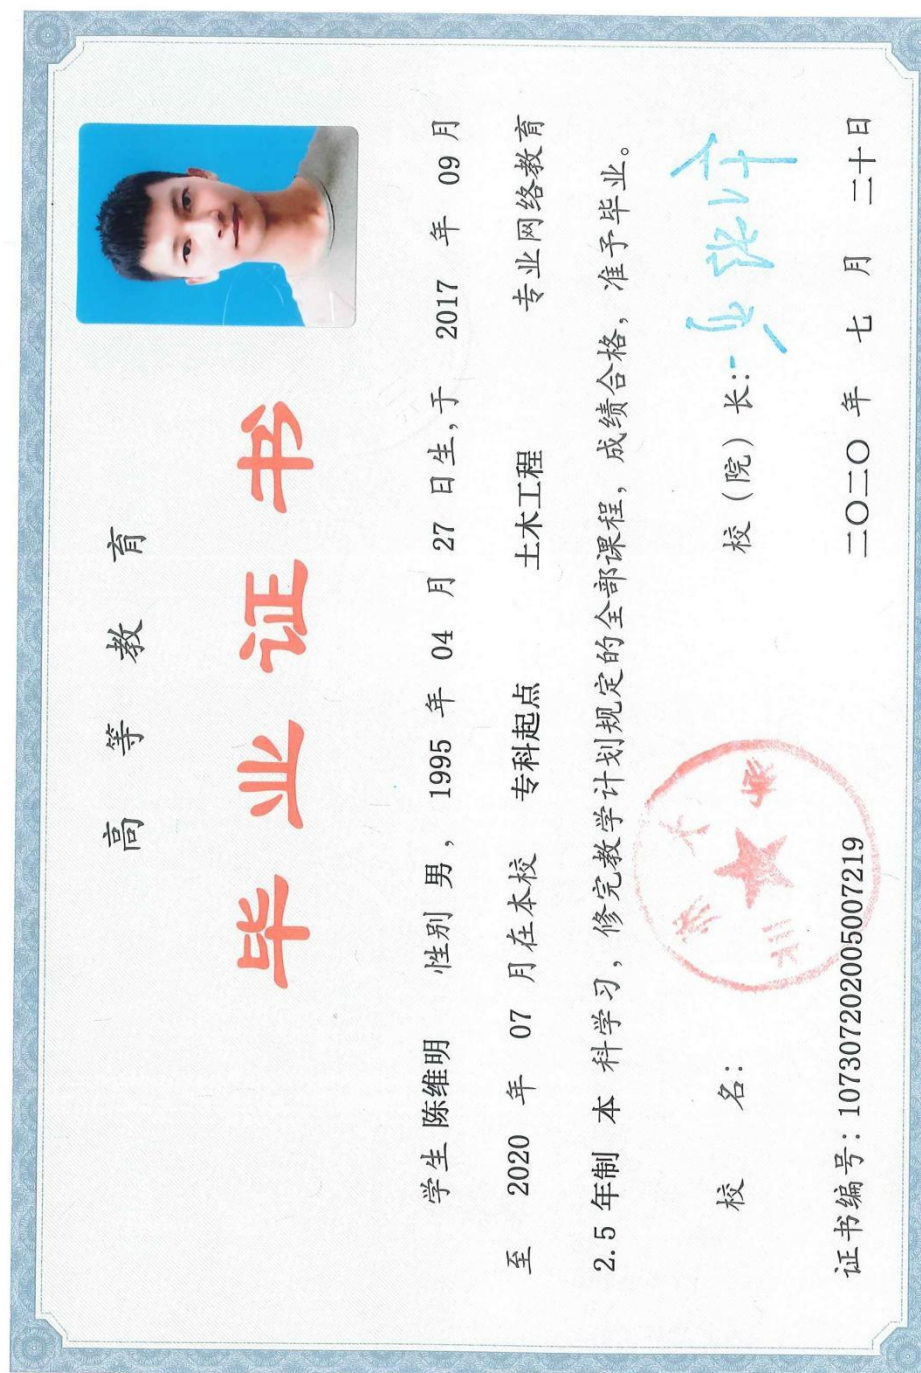 高等教育
毕业证书
学生 陈维明 性别 男, 1995 年 04 月 27 日生,于 2017 年 09 月
至 2020 年 07 月在本校 专科起点 土木工程 专业网络教育
2.5 年制 本 科学习, 修完教学计划规定的全部课程, 成绩合格, 准予毕业。
校 名: 校（院）长:
证书编号: 107307202005007219 二〇二〇 年 七 月 二十日